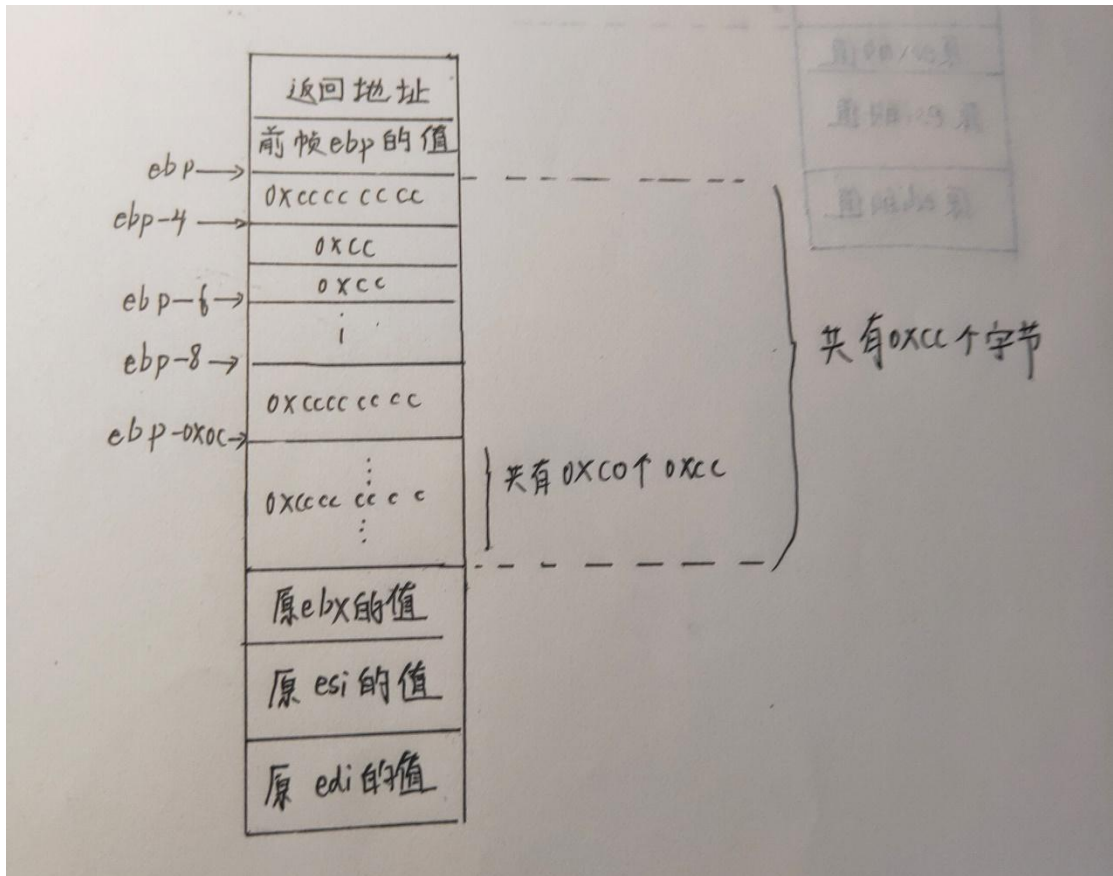 返回地址
前帧ebp的值
ebp→
0xcccc cccc
ebp-4→
0xcc
0xcc
ebp-6→
i
ebp-8→
0xcccc cccc
ebp-0x0c→
0xcccc cccc
共有0xC0个 0xCC
共有0xCC个字节
原ebx的值
原 esi 的值
原 edi 的值
原ebx的值
原esi的值
原edi的值